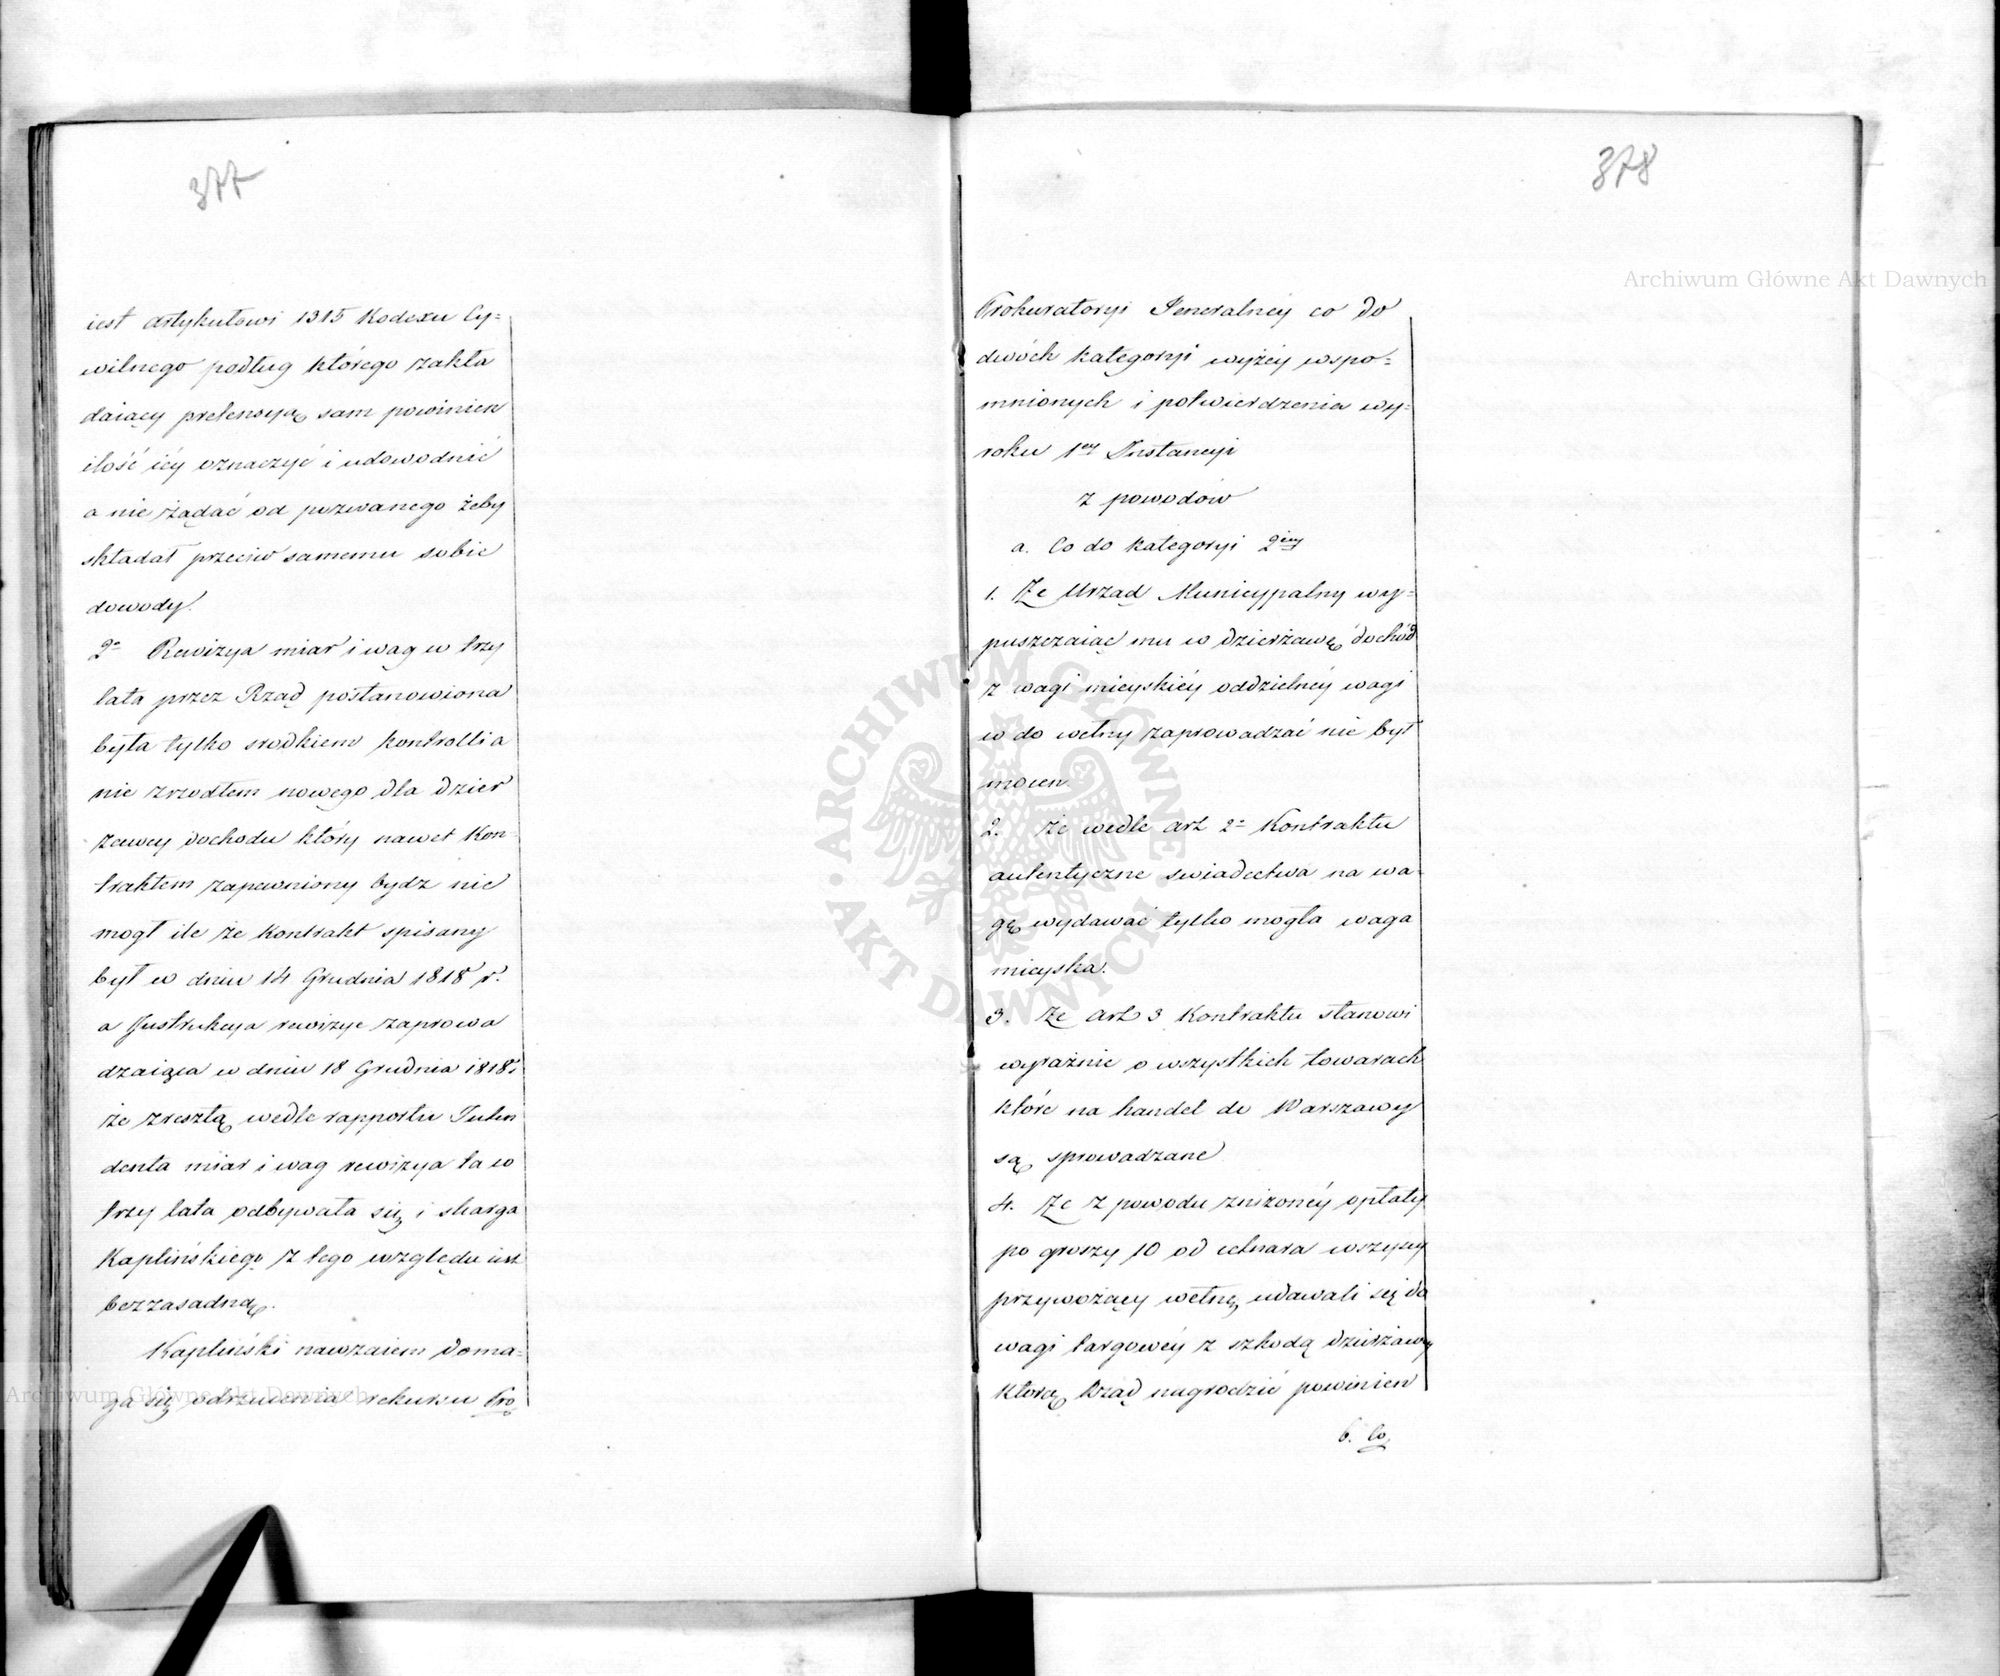 377
iest artykułowi 1315 Kodexu Cy=
wilnego podług którego zakła
daiący pretensyą sam powinien
ilość iéy oznaczyć i udowodnić
a nie żądać od pozwanego żeby
składał przeciw samemu sobie
dowody.
2º Rewizya miar i wag w trzy
lata przez Rząd postanowiona
była tylko srodkiem kontrolli a
nie zrzodłem nowego dla dzier
żawcy dochodu który nawet Kon-
traktem zapewniony bydz nie
mogł ile że Kontrakt spisany
był w dniu 14 Grudnia 1818 r.
a Instrukcya rewizye zaprowa
dzaiąca w dniu 18 Grudnia 1818.
że zresztą wedle rapportu Inten
denta miar i wag rewizya ta w
trzy lata odbywała się i skarga
Kaplińskiego z tego względu iest
bezzasadną.
Kapliński nawzaiem doma-
ga się odrzucenia rekursu Pro
378
Prokuratoryi Jeneralnéy co do
dwóch kategoryi wyżéy wspo=
mnionych i potwierdzenia wy=
roku 1ey Instancyi
z powodów
a. Co do kategoryi 2iey
1. Że Urząd Municypalny wy=
puszczaiąc mu w dzierżawę dochód
z wagi mieyskiéy oddzielnéy wagi
w do wełny zaprowadzać nie był
mocen.
2. Że wedle art 2º Kontraktu
autentyczne swiadectwa na wa-
gę wydawać tylko mogła waga
mieyska.
3. Że art 3 Kontraktu stanowi
wyraźnie o wszystkich towarach
które na handel do Warszawy
są sprowadzane
4. Że z powodu zniżonéy opłaty
po groszy 10 od cetnara wszyscy
przywożący wełnę udawali się do
wagi targowéy z szkodą dzierżawcy
którą Rząd nagrodzić powinien
b. Co
Archiwum Główne Akt Dawnych
Archiwum Główne Akt Dawnych
ARCHIWUM GŁÓWNE AKT DAWNYCH